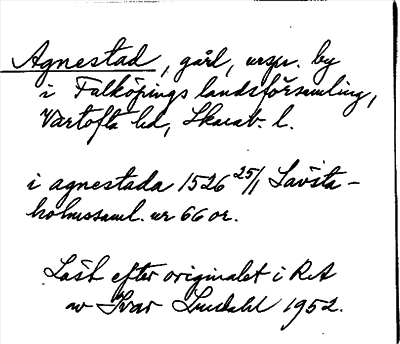 Agnestad, gård, urspr. by
i Falköpings landsförsamling,
Vartofta hd, Skarab. l.
i agnestada 1526 25/1 Lavsta-
holmssaml. nr 66 or.
Läst efter originalet i RA
av Ivar Lundahl 1952.